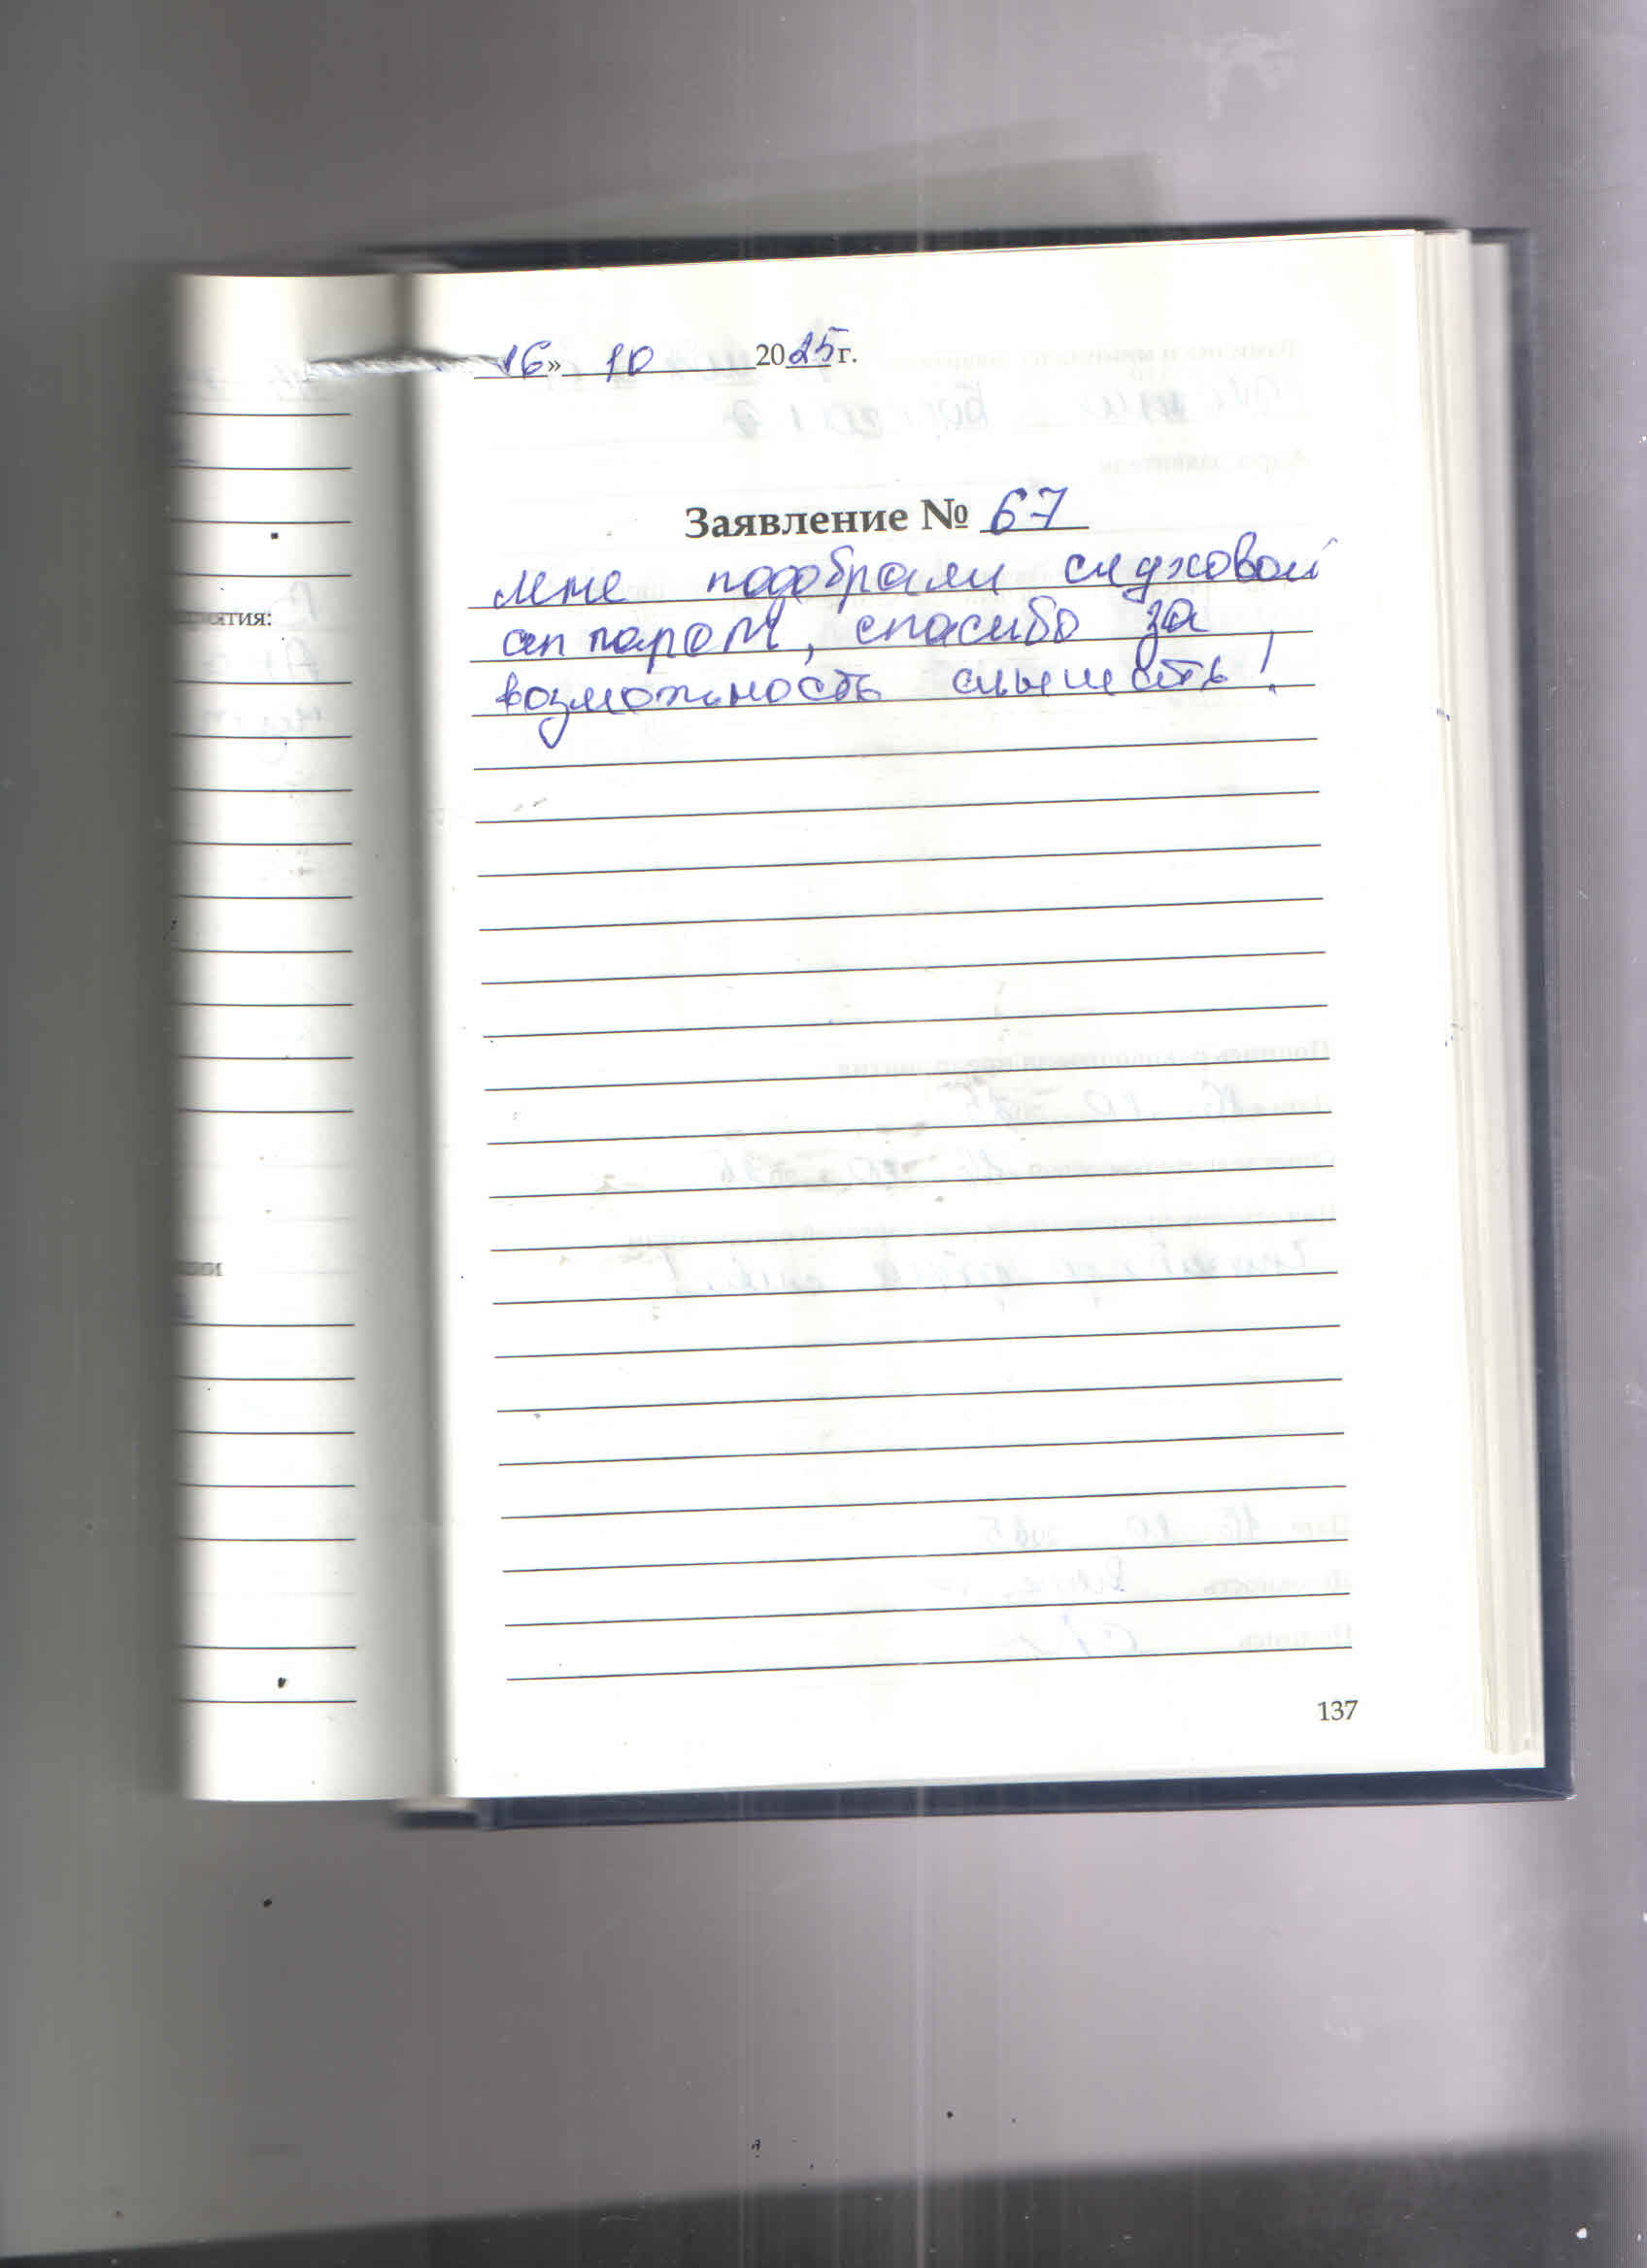 16» 10 2025г.
Заявление № 67
Мне подобрали слуховой
аппарат, спасибо за
возможность слышать!
137